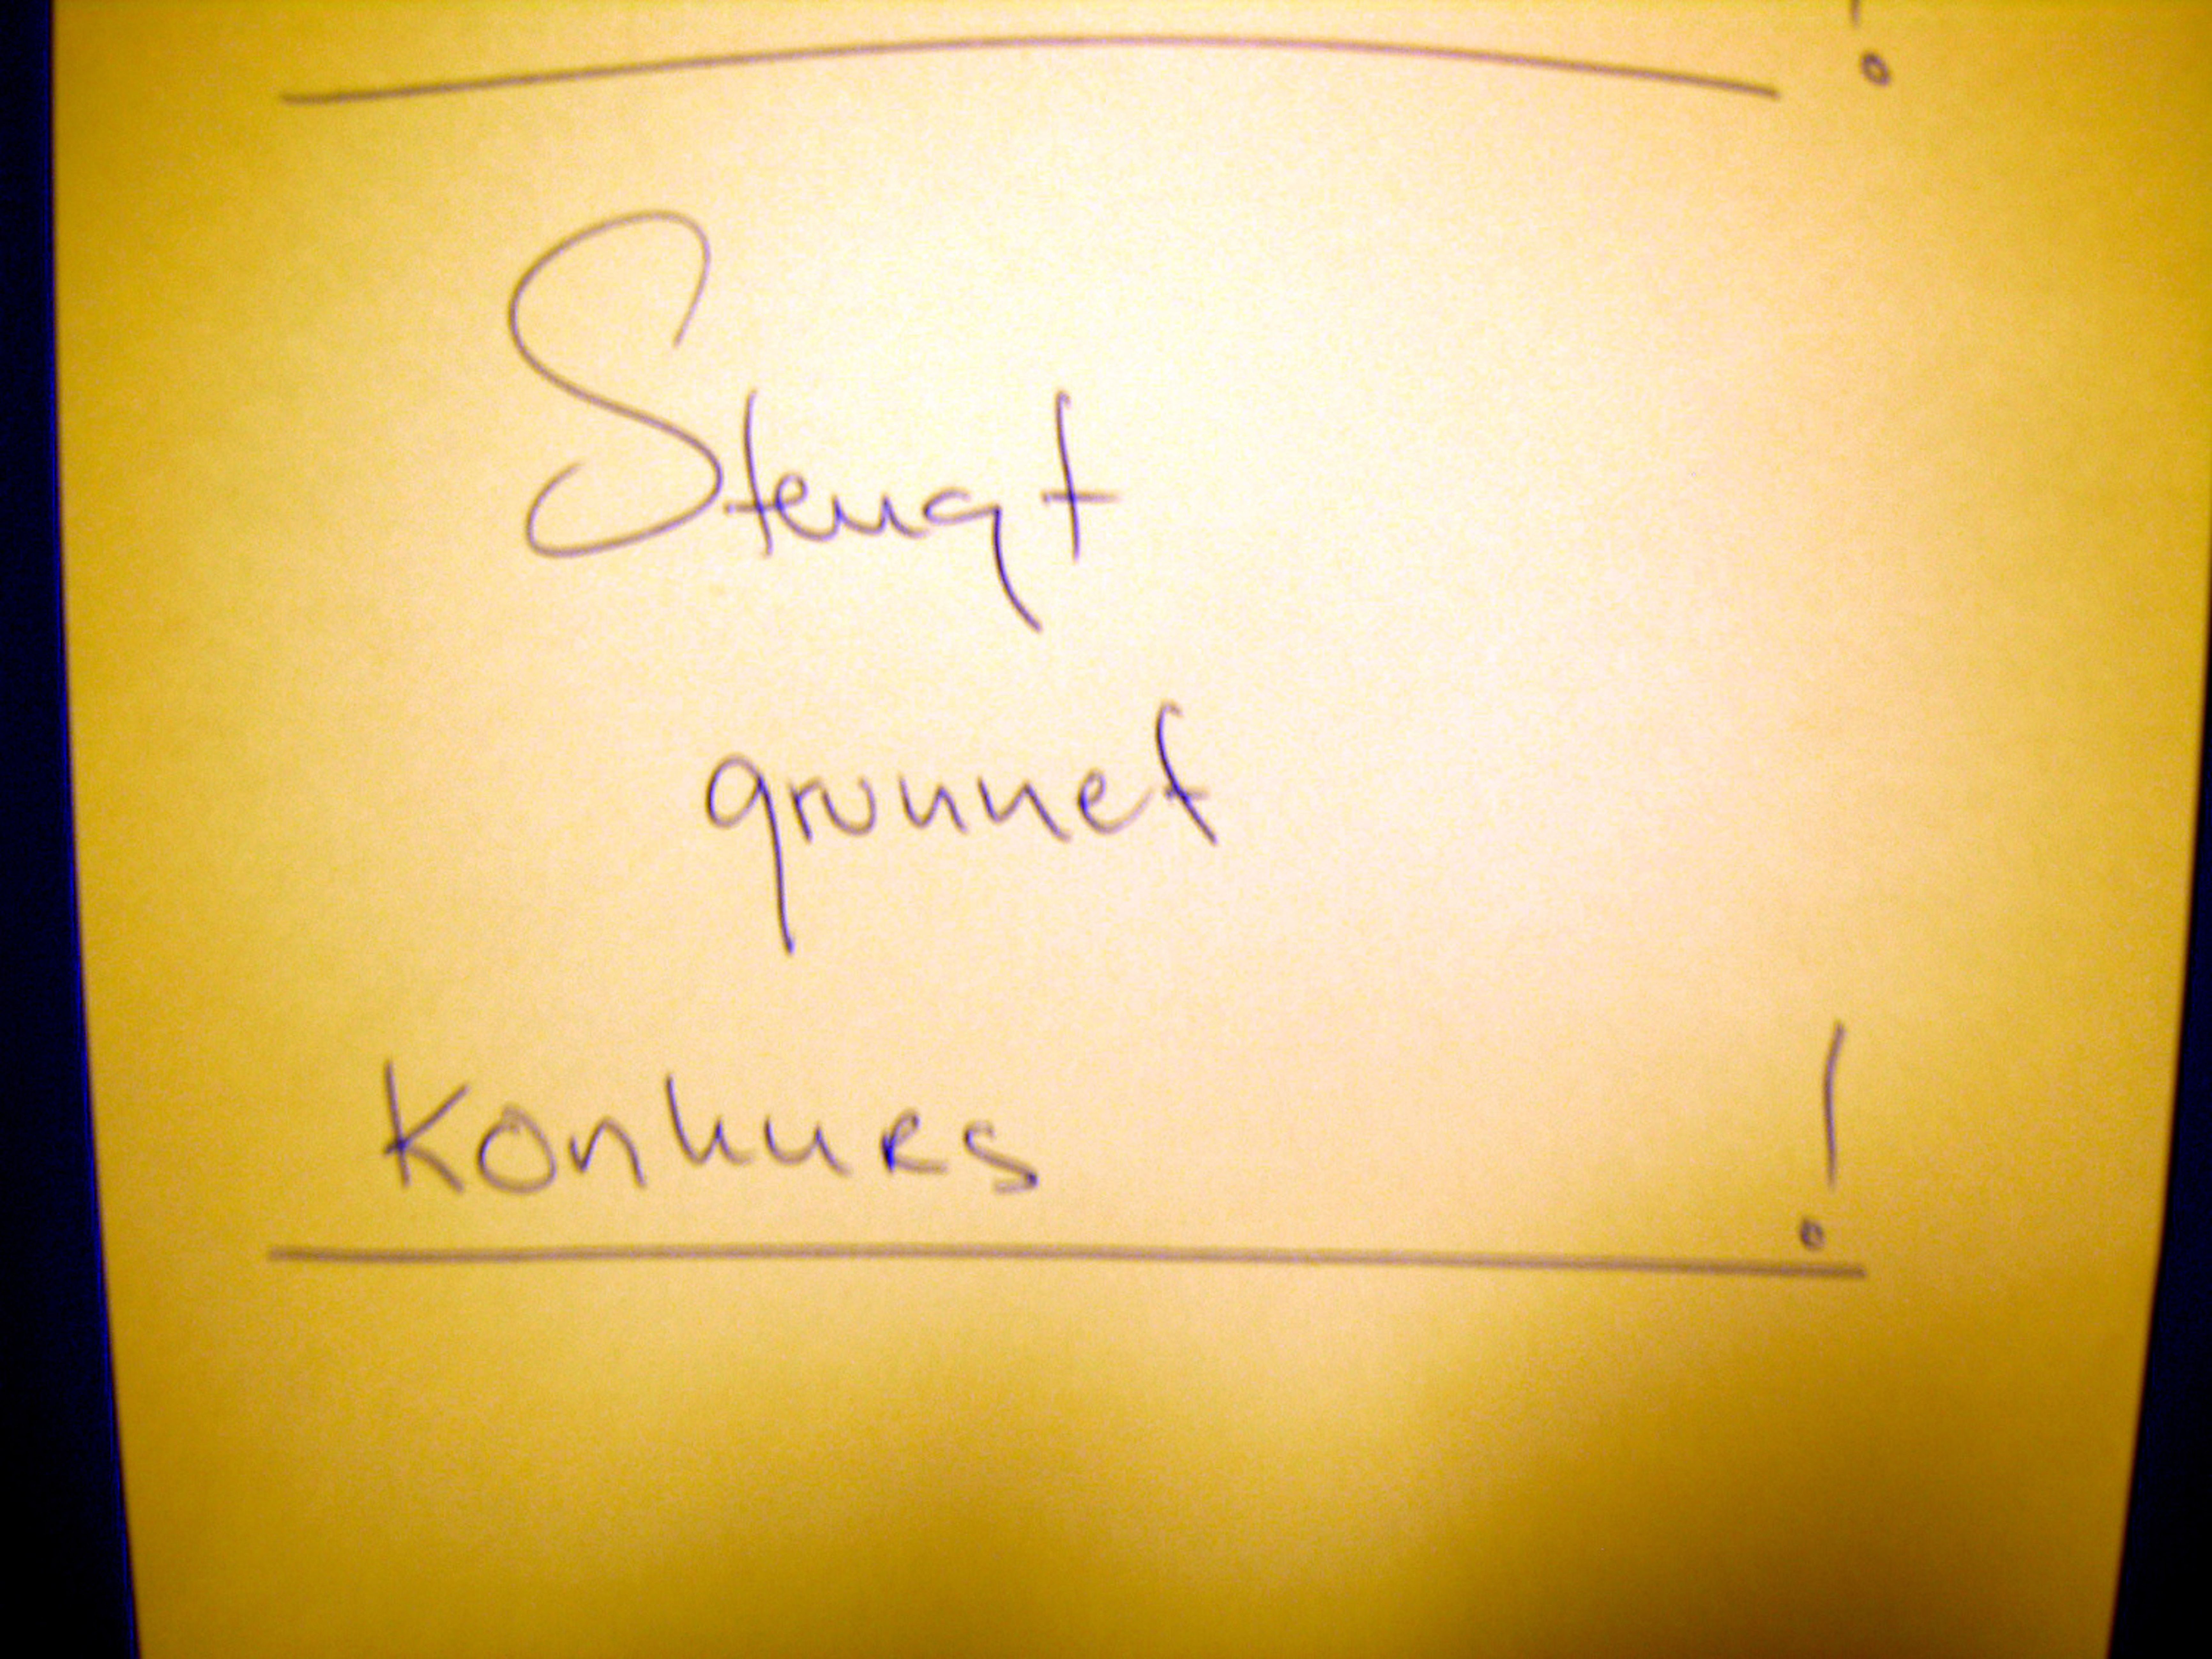 !
Stengt
grunnet
Konkurs !